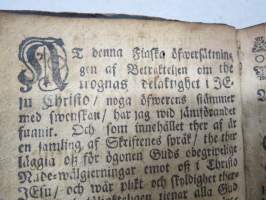 AT denna Finska öfwersättnin-
gen af Betrachtelsen om the
trognas delachtighet i JE-
su Christo / noga öfwerens stämmer
med swenskan / har jag wid jämförandet
funnit. Och som innehållet ther af är
en samling af Skriftenes språk / the ther
läggia oss för ögonen Guds obegripelige
Nåde-wälgierningar emot oss i Christo
JEsu / och wår plicht och skyldighet ther
tienar alla Gud